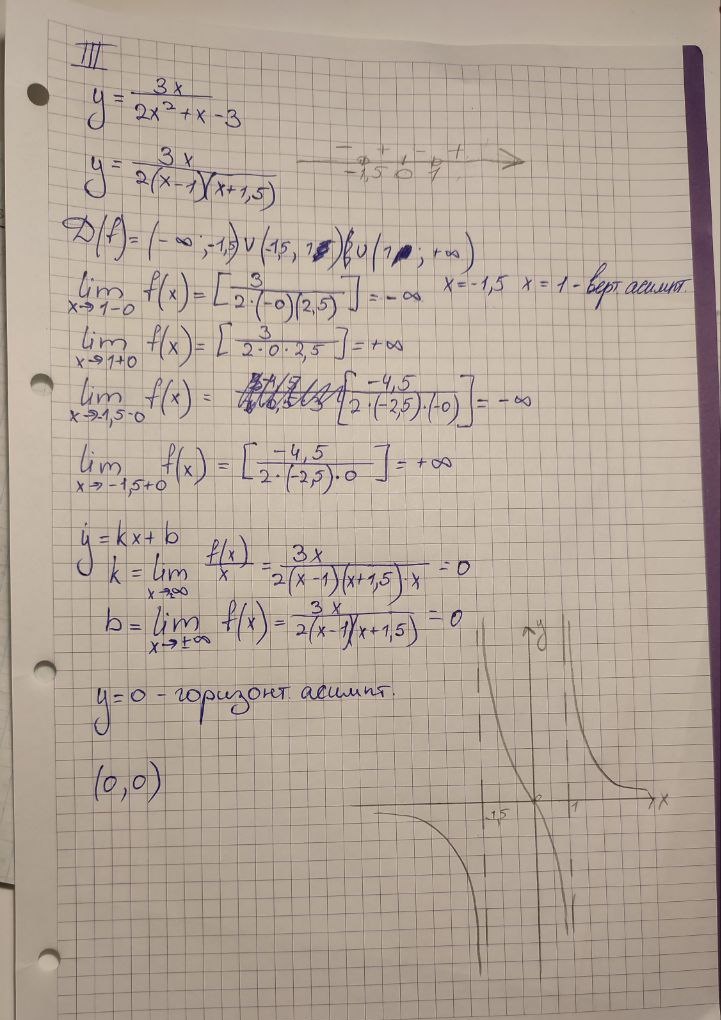 III
y = 3x / (2x² + x - 3)
y = 3x / (2(x-1)(x+1,5))
- + - +
-1,5 0 1
D(f) = (-∞; -1,5) ∪ (-1,5, 1) ∪ (1; +∞)
x = -1,5 x = 1 - верт. асимпт.
lim x→1-0 f(x) = [3 / (2·(-0)(2,5))] = -∞
lim x→1+0 f(x) = [3 / (2·0·2,5)] = +∞
lim x→-1,5-0 f(x) = [-4,5 / (2·(-2,5)·(-0))] = -∞
lim x→-1,5+0 f(x) = [-4,5 / (2·(-2,5)·0)] = +∞
y = kx + b
k = lim x→±∞ f(x)/x = 3x / (2(x-1)(x+1,5)·x) = 0
b = lim x→±∞ f(x) = 3x / (2(x-1)(x+1,5)) = 0
y = 0 - горизонт. асимпт.
(0,0)
y
-1,5 0 1 x